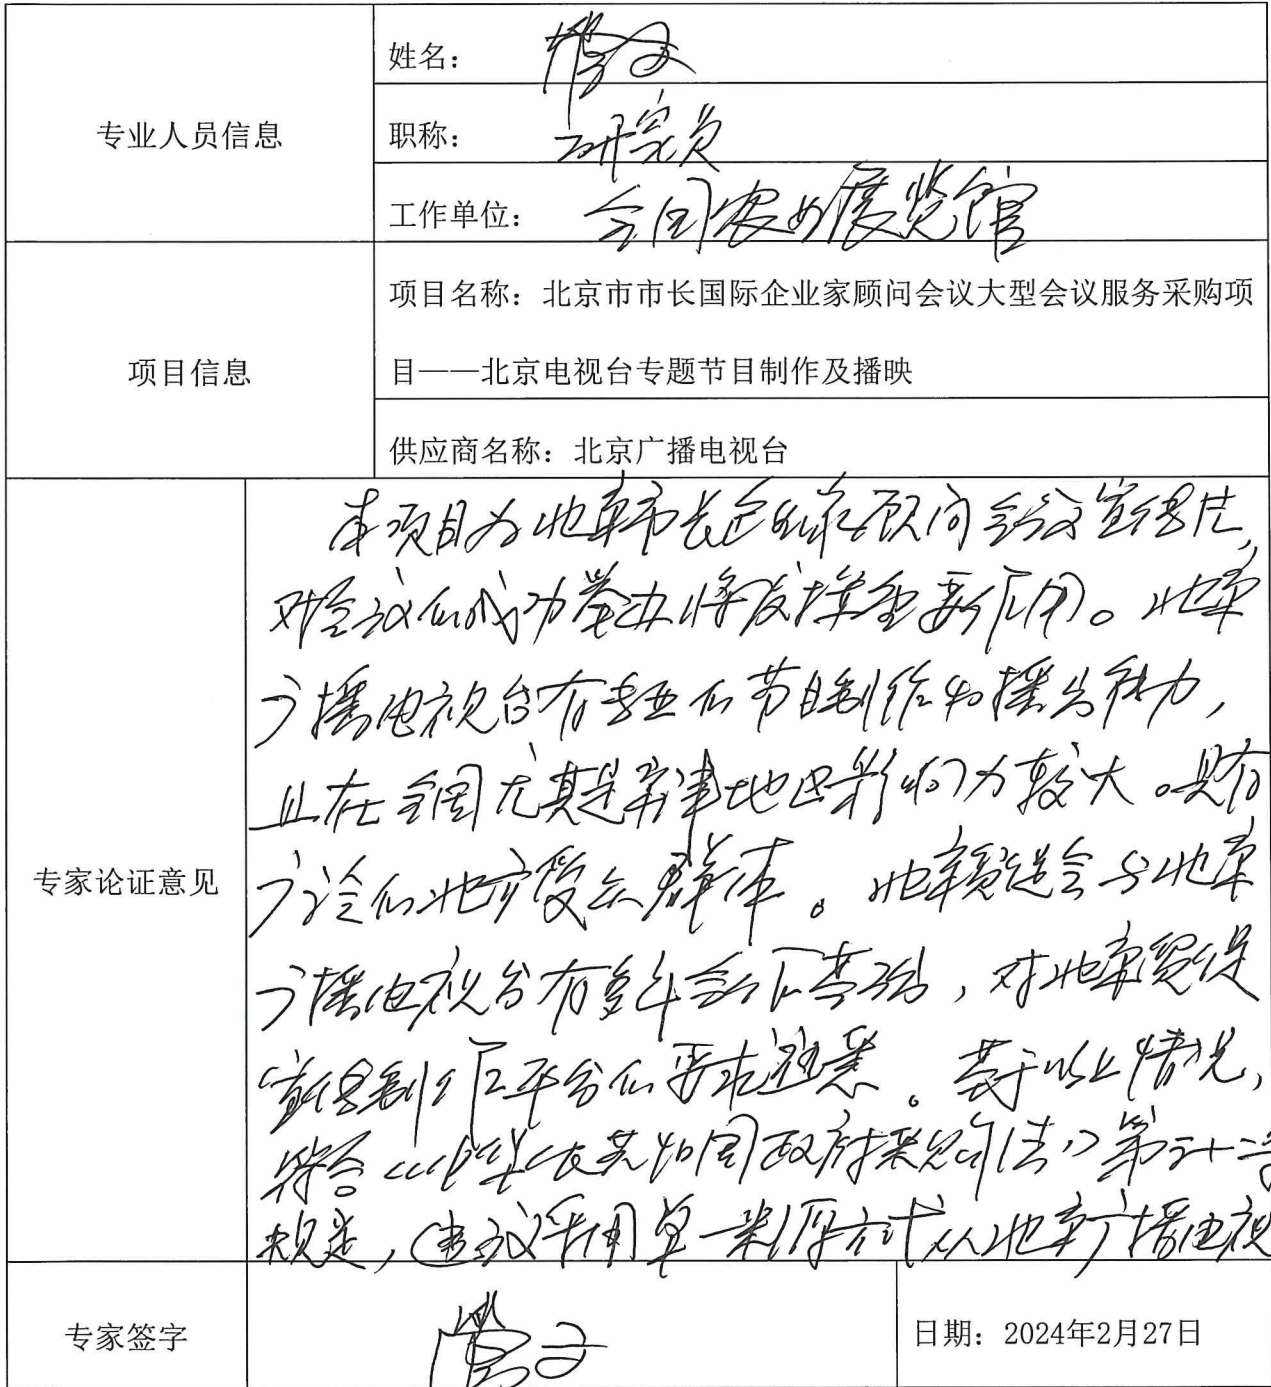 专业人员信息
姓名:
职称: 研究员
工作单位: 全国农业展览馆
项目信息
项目名称: 北京市市长国际企业家顾问会议大型会议服务采购项
目——北京电视台专题节目制作及播映
供应商名称: 北京广播电视台
专家论证意见
本项目为北京市长企业家顾问会议宣传片,
对会议的成功举办将发挥重要作用。北京
广播电视台有专业的节目制作和播出能力,
且在全国尤其是京津地区影响力较大。具有
广泛的地方受众群体。北京贸促会与北京
广播电视台有多年合作基础,对北京贸促
宣传制作平台的要求熟悉。基于以上情况,
符合《中华人民共和国政府采购法》第三十一条
规定,建议采用单一来源方式从北京广播电视
专家签字
日期: 2024年2月27日